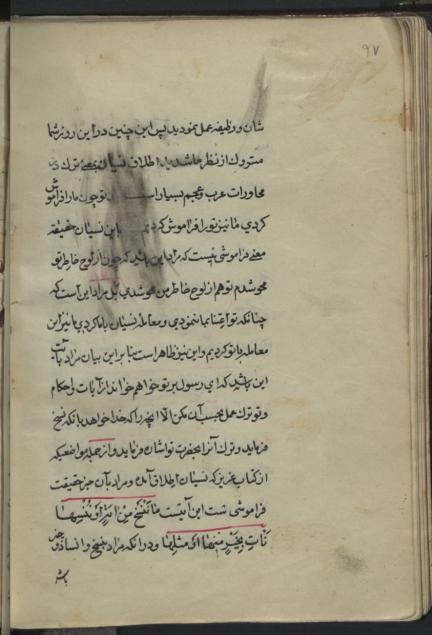 ۹۷
شان و وظیفه عمل نمودید پس این چنین در این روز شما
متروك از نظر ما شدید و اطلاق نسیان بمعنی ترك در
محاورات عرب و عجم بسیار است تو چون ما را فراموش
کردی ما نیز تو را فراموش کردیم باین نسیان حقیقة
معنی فراموشی نیست که مراد این باشد که چون از لوح خاطر تو
محو شدم تو هم از لوح خاطر من محو شدی بل مراد این است که
چنانکه تو اعتنا بما ننمودی و معامله نسیان با ما کردی ما نیز این
معامله با تو کردیم و این نیز ظاهر است بنابر این بیان مراد بآیت
این باشد که ای رسول بر تو خواهم خواند از آیات و احکام
و تو ترك عمل بحسب آن مکن الا آنچه را که خدا خواهد بآنکه نسخ
فرماید و ترك آنرا بحضرت تو اشان فرماید و از جمله مواضعیکه
از کتاب عزیز که نسیان اطلاق آمده و مراد بآن جز حقیقت
فراموشی است این آیتست مَا نَنْسَخْ مِنْ آیَةٍ أَوْ نُنْسِهَا
نَأْتِ بِخَیْرٍ مِنْهَا أَوْ مِثْلِهَا و در آنکه مراد بنسخ و انسا ذو